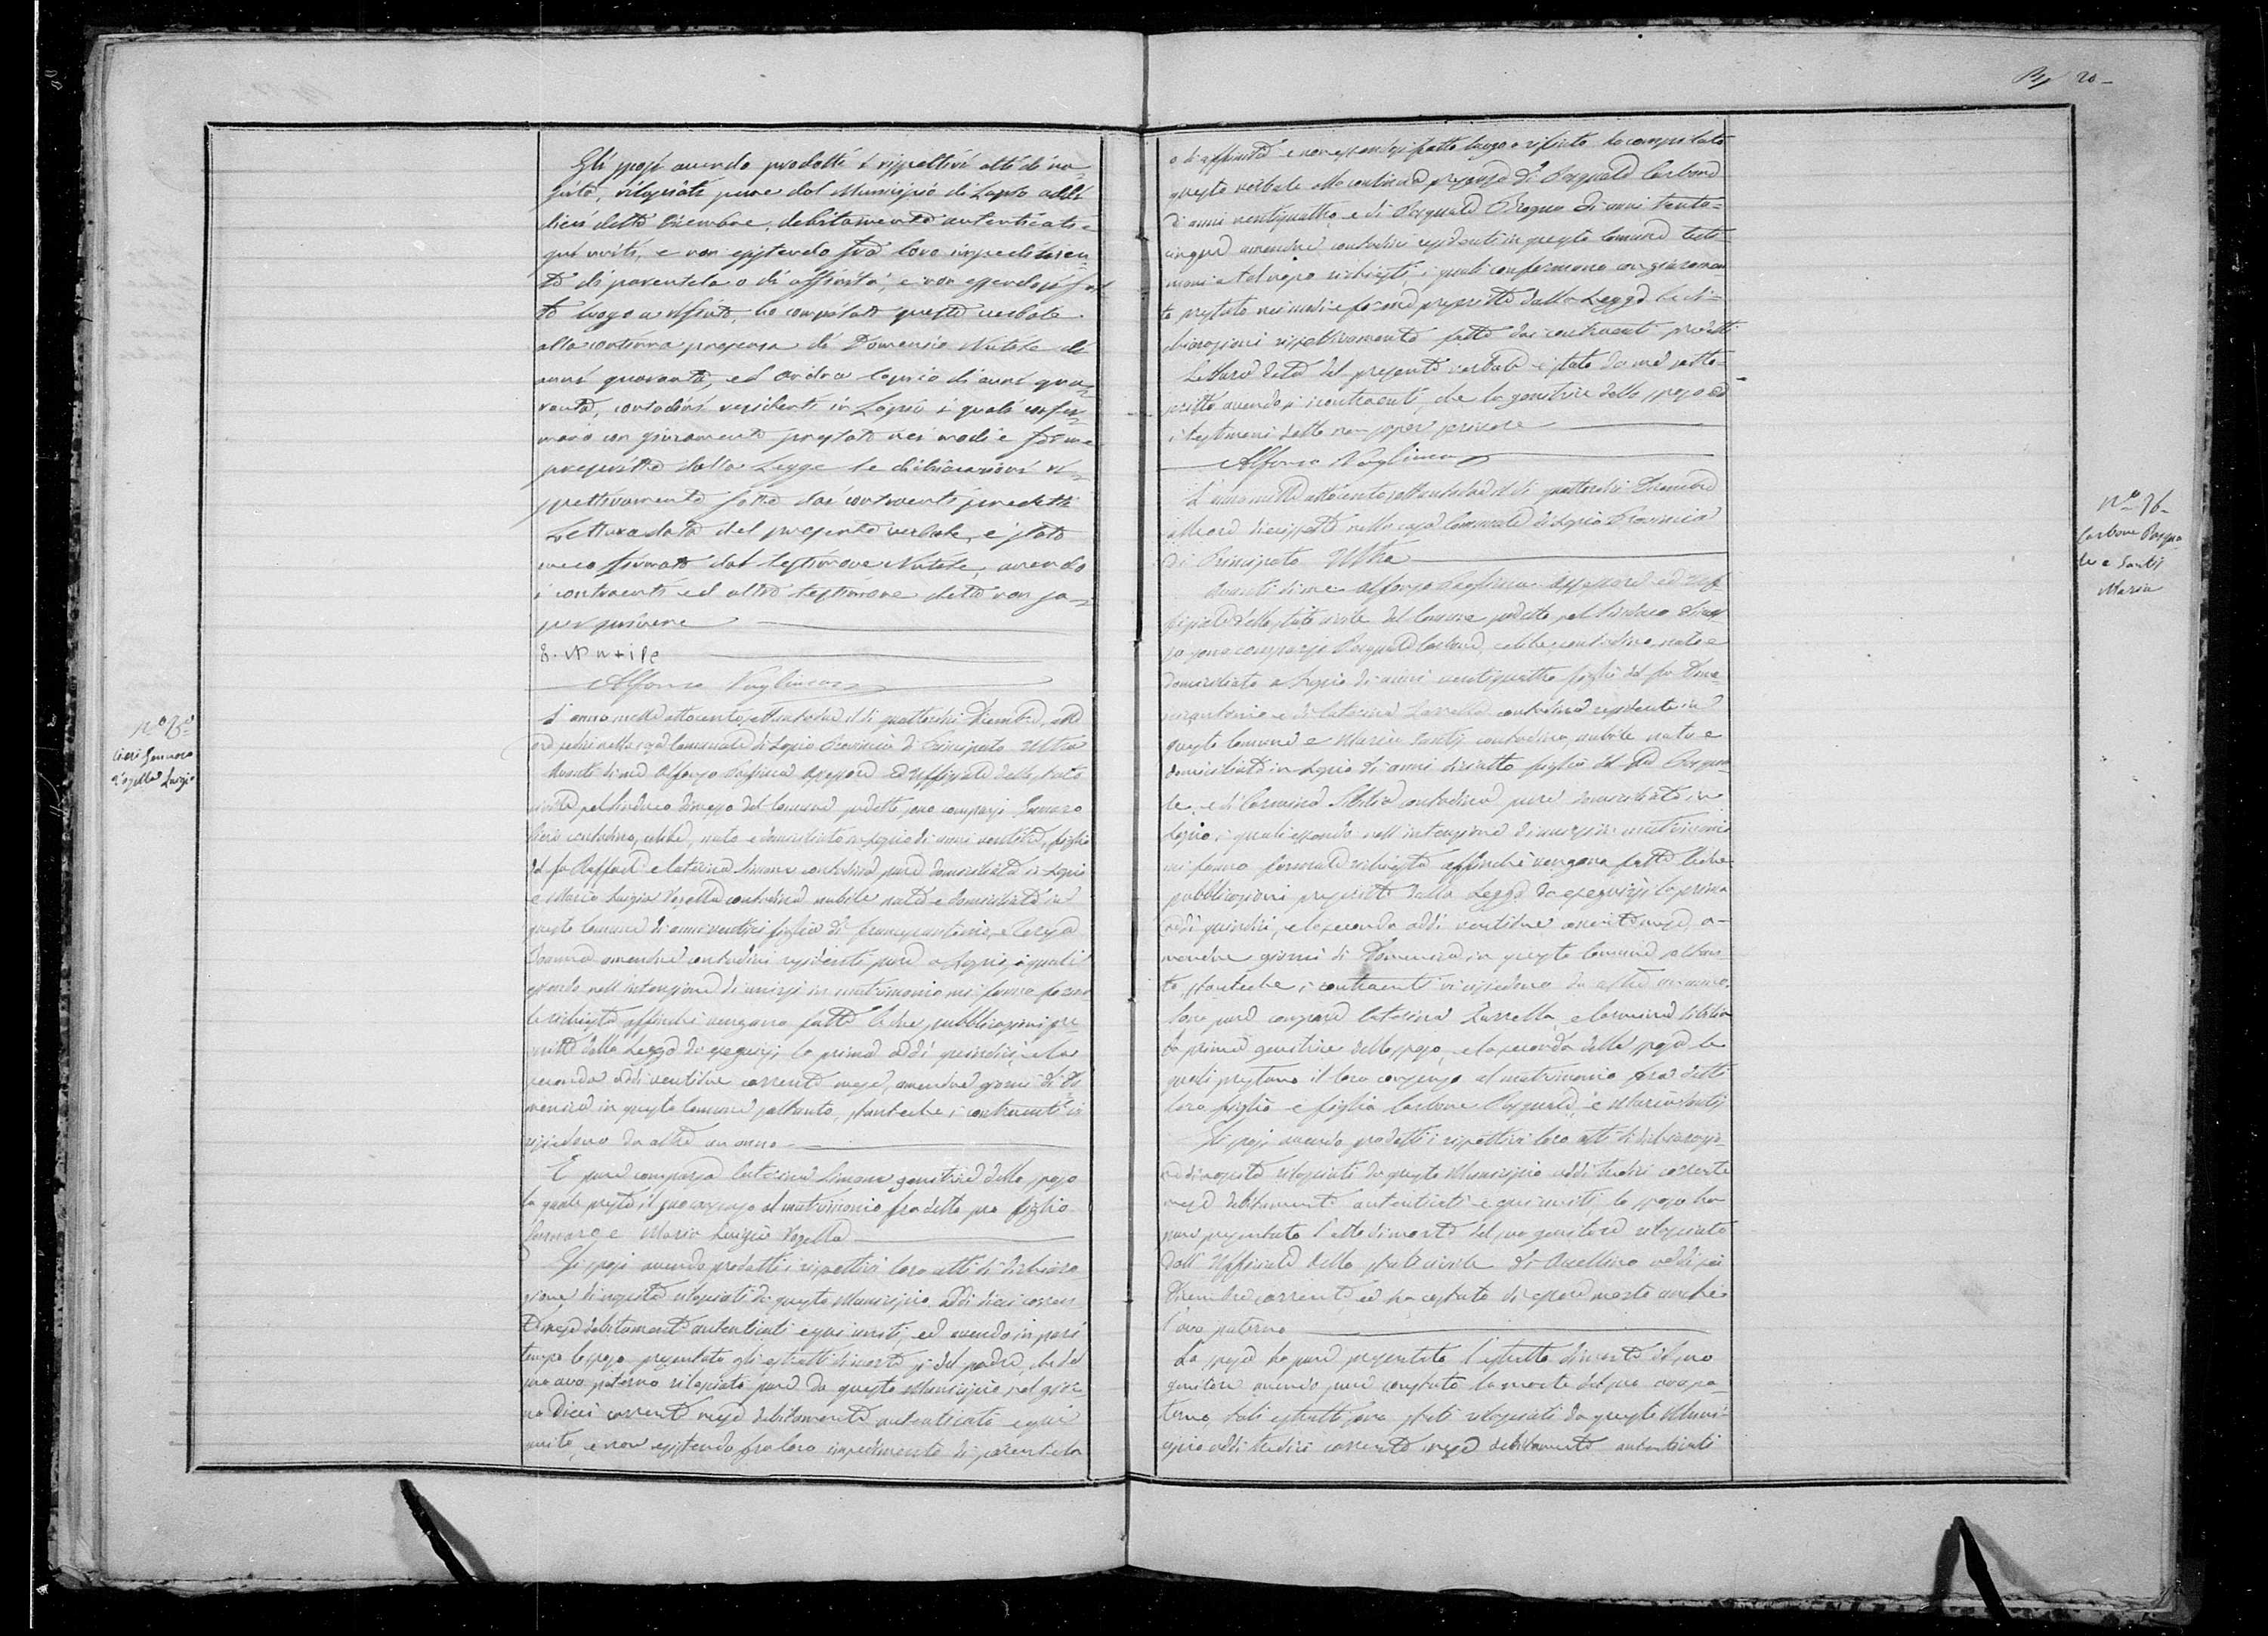 20
Gli sposi avendo prodotti i rispettivi atti di na=
scita, rilasciati pure dal Municipio di Lapio addì
dieci detto Dicembre, debitamente autenticati e
qui uniti, e non esistendo fra loro impedimen=
to di parentela o di affinità, e non essendosi fat
to luogo a rifiuto, ho compilato questo verbale
alla continua presenza di Domenico Natale di
anni quaranta, ed Andrea Caprio di anni qua=
ranta, contadini residenti in Lapio i quali confer=
mano con giuramento prestato nei modi e forme
prescritte dalla Legge le dichiarazioni ri=
spettivamente fatte dai contraenti predetti
Lettura data del presente verbale, è stato
meco firmato dal testimone Natale, avendo
i contraenti ed altro testimone detto non sa=
per scrivere
Alfonso
Nº 75
Cieri Gennaro
Vozella Luigia
L'anno mille ottocento settantadue il dì quattordici Dicembre, alle
ore sedici nella casa Comunale di Lapio Provincia di Principato Ultra
Avanti di me Alfonso Assessore ed Uffiziale dello stato
civile pel Sindaco del Comune suddetto sono comparsi Gennaro
Cieri contadino, celibe, nato e domiciliato a Lapio di anni figlio
del fu Raffaele e Caterina Simone contadina pure domiciliata in Lapio
e Maria Luigia Vozella contadina nubile nata e domiciliata in
questo Comune di anni figlia di Francescantonio, e
amendue contadini residenti pure a Lapio, i quali
essendo nell'intenzione di unirsi in matrimonio mi fanno forma
le richiesta affinchè vengano fatte le due pubblicazioni pre
scritte dalla Legge da eseguirsi la prima addì quindici, e la
seconda addì ventidue corrente mese, amendue giorni di Do
menica in questo Comune soltanto, stantechè i contraenti vi
risiedono da oltre un anno
E pure comparsa Caterina Simone genitrice dello sposo
la quale presta il suo consenso al matrimonio fra detto suo figlio
Gennaro e Maria Luigia Vozella
Gli sposi avendo prodotti i rispettivi loro atti di dichiara
zione di nascita rilasciati da questo Municipio addì dieci corren
te mese debitamente autenticati e qui uniti, ed avendo in pari
tempo lo sposo presentato gli estratti di morte sì del padre, che del
suo avo paterno rilasciati pure da questo Municipio nel gior
no dieci corrente mese debitamente autenticati e qui
uniti, e non esistendo fra loro impedimento di parentela
o di affinità e non essendosi fatto luogo a rifiuto ho compilato
questo verbale alla continua presenza di Pasquale Carbone
di anni ventiquattro, e di Pasquale di anni trenta=
cinque amendue contadini residenti in questo Comune testi
moni a tal uopo richiesti i quali confermano con giuramen
to prestato nei modi e forme prescritte dalla Legge le di=
chiarazioni rispettivamente fatte dai contraenti predetti
Lettura data del presente verbale è stato da me sotto
scritto avendo i contraenti, che la genitrice dello sposo ed
i testimoni detto non saper scrivere
Alfonso
Nº 76
Carbone Pasqua
le e Santis
Maria
L'anno mille ottocento settantadue il dì quattordici Dicembre
alle ore diecisette nella casa Comunale di Lapio Provincia
di Principato Ultra
Avanti di me Alfonso Assessore ed Uff
iziale dello stato civile del Comune suddetto pel Sindaco
sono comparsi Pasquale Carbone, celibe, contadino nato e
domiciliato a Lapio di anni ventiquattro figlio del fu Dome
nicantonio e di Caterina Zarrella contadina residente in
questo Comune e Maria Santis contadina, nubile nata e
domiciliata in Lapio di anni diciotto figlia del fu Pasqua
le, e di Carmina Sibilia contadina pure domiciliata in
Lapio, i quali essendo nell'intenzione di unirsi in matrimonio
mi fanno formale richiesta affinchè vengano fatte le due
pubblicazioni prescritte dalla Legge da eseguirsi la prima
addì quindici, e la seconda addì ventidue corrente mese, a=
mendue giorni di Domenica in questo Comune soltan
to stantechè i contraenti vi risiedono da oltre un anno.
Sono pure comparse Caterina Zarrella, e Carmina Sibilia
la prima genitrice dello sposo, e la seconda della sposa le
quali prestano il loro consenso al matrimonio fra detti
loro figlio e figlia Carbone Pasquale, e Maria Santis
Gli sposi avendo prodotti i rispettivi loro atti di dichiarazio
ne di nascita rilasciati da questo Municipio addì tredici corrente
mese debitamente autenticati e qui uniti, lo sposo ha
pure presentato l'atto di morte del suo genitore rilasciato
dall'Uffiziale dello stato civile di Avellino addì sei
Dicembre corrente ed ha costatato di essere morto anche
l'avo paterno
La sposa ha pure presentato l'estratto di morte del suo
genitore avendo pure constatato la morte del suo avo pa=
terno, tali estratti sono stati rilasciati da questo Muni=
cipio addì tredici corrente mese debitamente autenticati